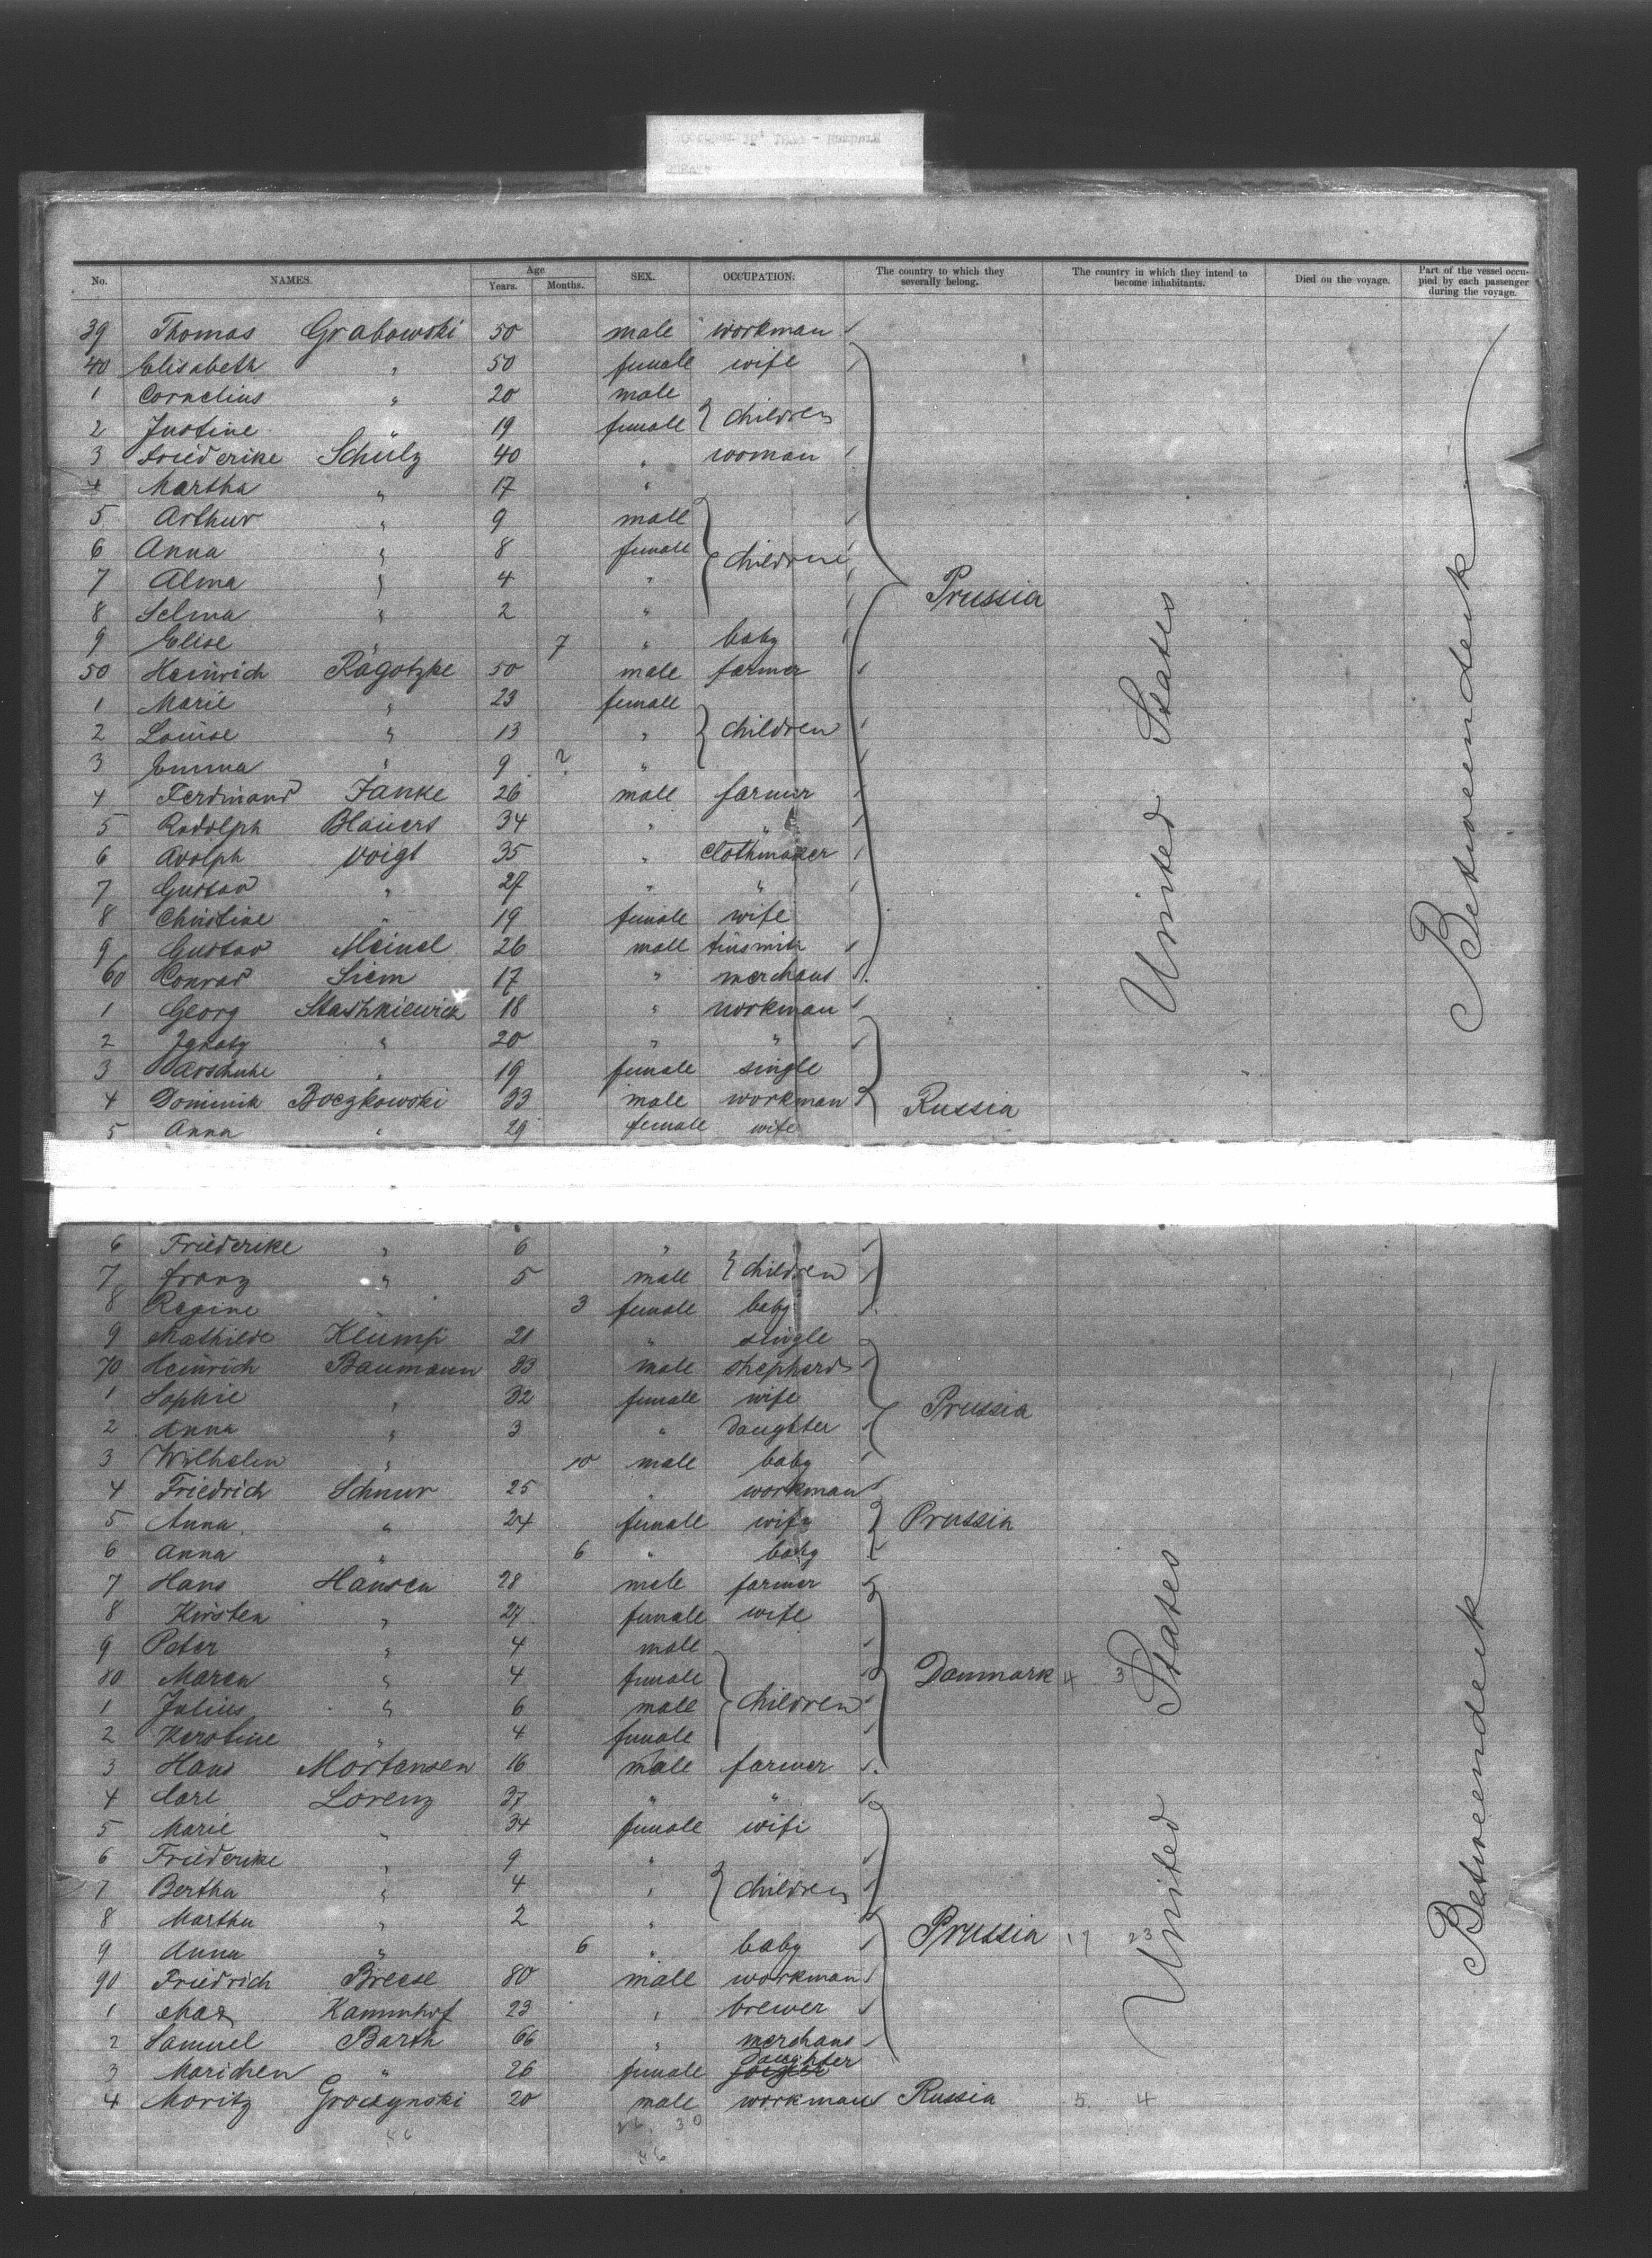 No. NAMES. Age Years. Months. SEX. OCCUPATION. The country to which they severally belong. The country in which they intend to become inhabitants. Died on the voyage. Part of the vessel occupied by each passenger during the voyage.
39 Thomas Grabowski 50 male workman
40 Elisabeth " 50 female wife
1 Cornelius " 20 male
2 Justine " 19 female children
3 Friederike Schulz 40 " woman
4 Martha " 17 "
5 Arthur " 9 male
6 Anna " 8 female children
7 Alma " 4 " Prussia
8 Selma " 2 "
9 Elise " 7 " baby
50 Heinrich Ragotzke 50 male farmer
1 Marie " 23 female
2 Louise " 13 " children
3 Emma " 9 "
4 Ferdinand Janke 26 male farmer
5 Rudolph Blauert 34 " "
6 Adolph Voigt 35 " clothmaker
7 Gustav " 27 " "
8 Christine " 19 female wife
9 Gustav Meinel 26 male tinsmith
60 Conrad Siem 17 " merchant
1 Georg 18 " workman
2 Ignatz " 20 " "
3 " 19 female single
4 Dominik Boczkowski 33 male workman Russia
5 Anna " 29 female wife
United States
Betweendeck
6 Friederike " 6 "
7 Franz " 5 male children
8 Regine " 3 female baby
9 Mathilde Klump 21 " single
70 Heinrich Baumann 33 male shepherd
1 Sophie " 32 female wife Prussia
2 Anna " 3 " Daughter
3 Wilhelm " 10 male baby
4 Friedrich Schnur 25 " workman
5 Anna " 24 female wife Prussia
6 Anna " 6 " baby
7 Hans Hansen 28 male farmer
8 Kirsten " 27 female wife
9 Peter " 4 male
80 Maren " 4 female Danmark 4 3
1 Julius " 6 male children
2 Kerstine " 4 female
3 Hans Mortensen 16 male farmer
4 Carl Lorenz 37 " "
5 Marie " 34 female wife
6 Friederike " 9 "
7 Bertha " 4 " children
8 Martha " 2 "
9 Anna " 6 " baby Prussia 19 23
90 Friedrich Breese 80 male workman
1 Max Kammhof 23 " brewer
2 Samuel Barth 66 " merchant
3 Marichen " 26 female daughter
4 Moritz Groczynski 20 male workman Russia 5 4
United States
Betweendeck
26 30
56